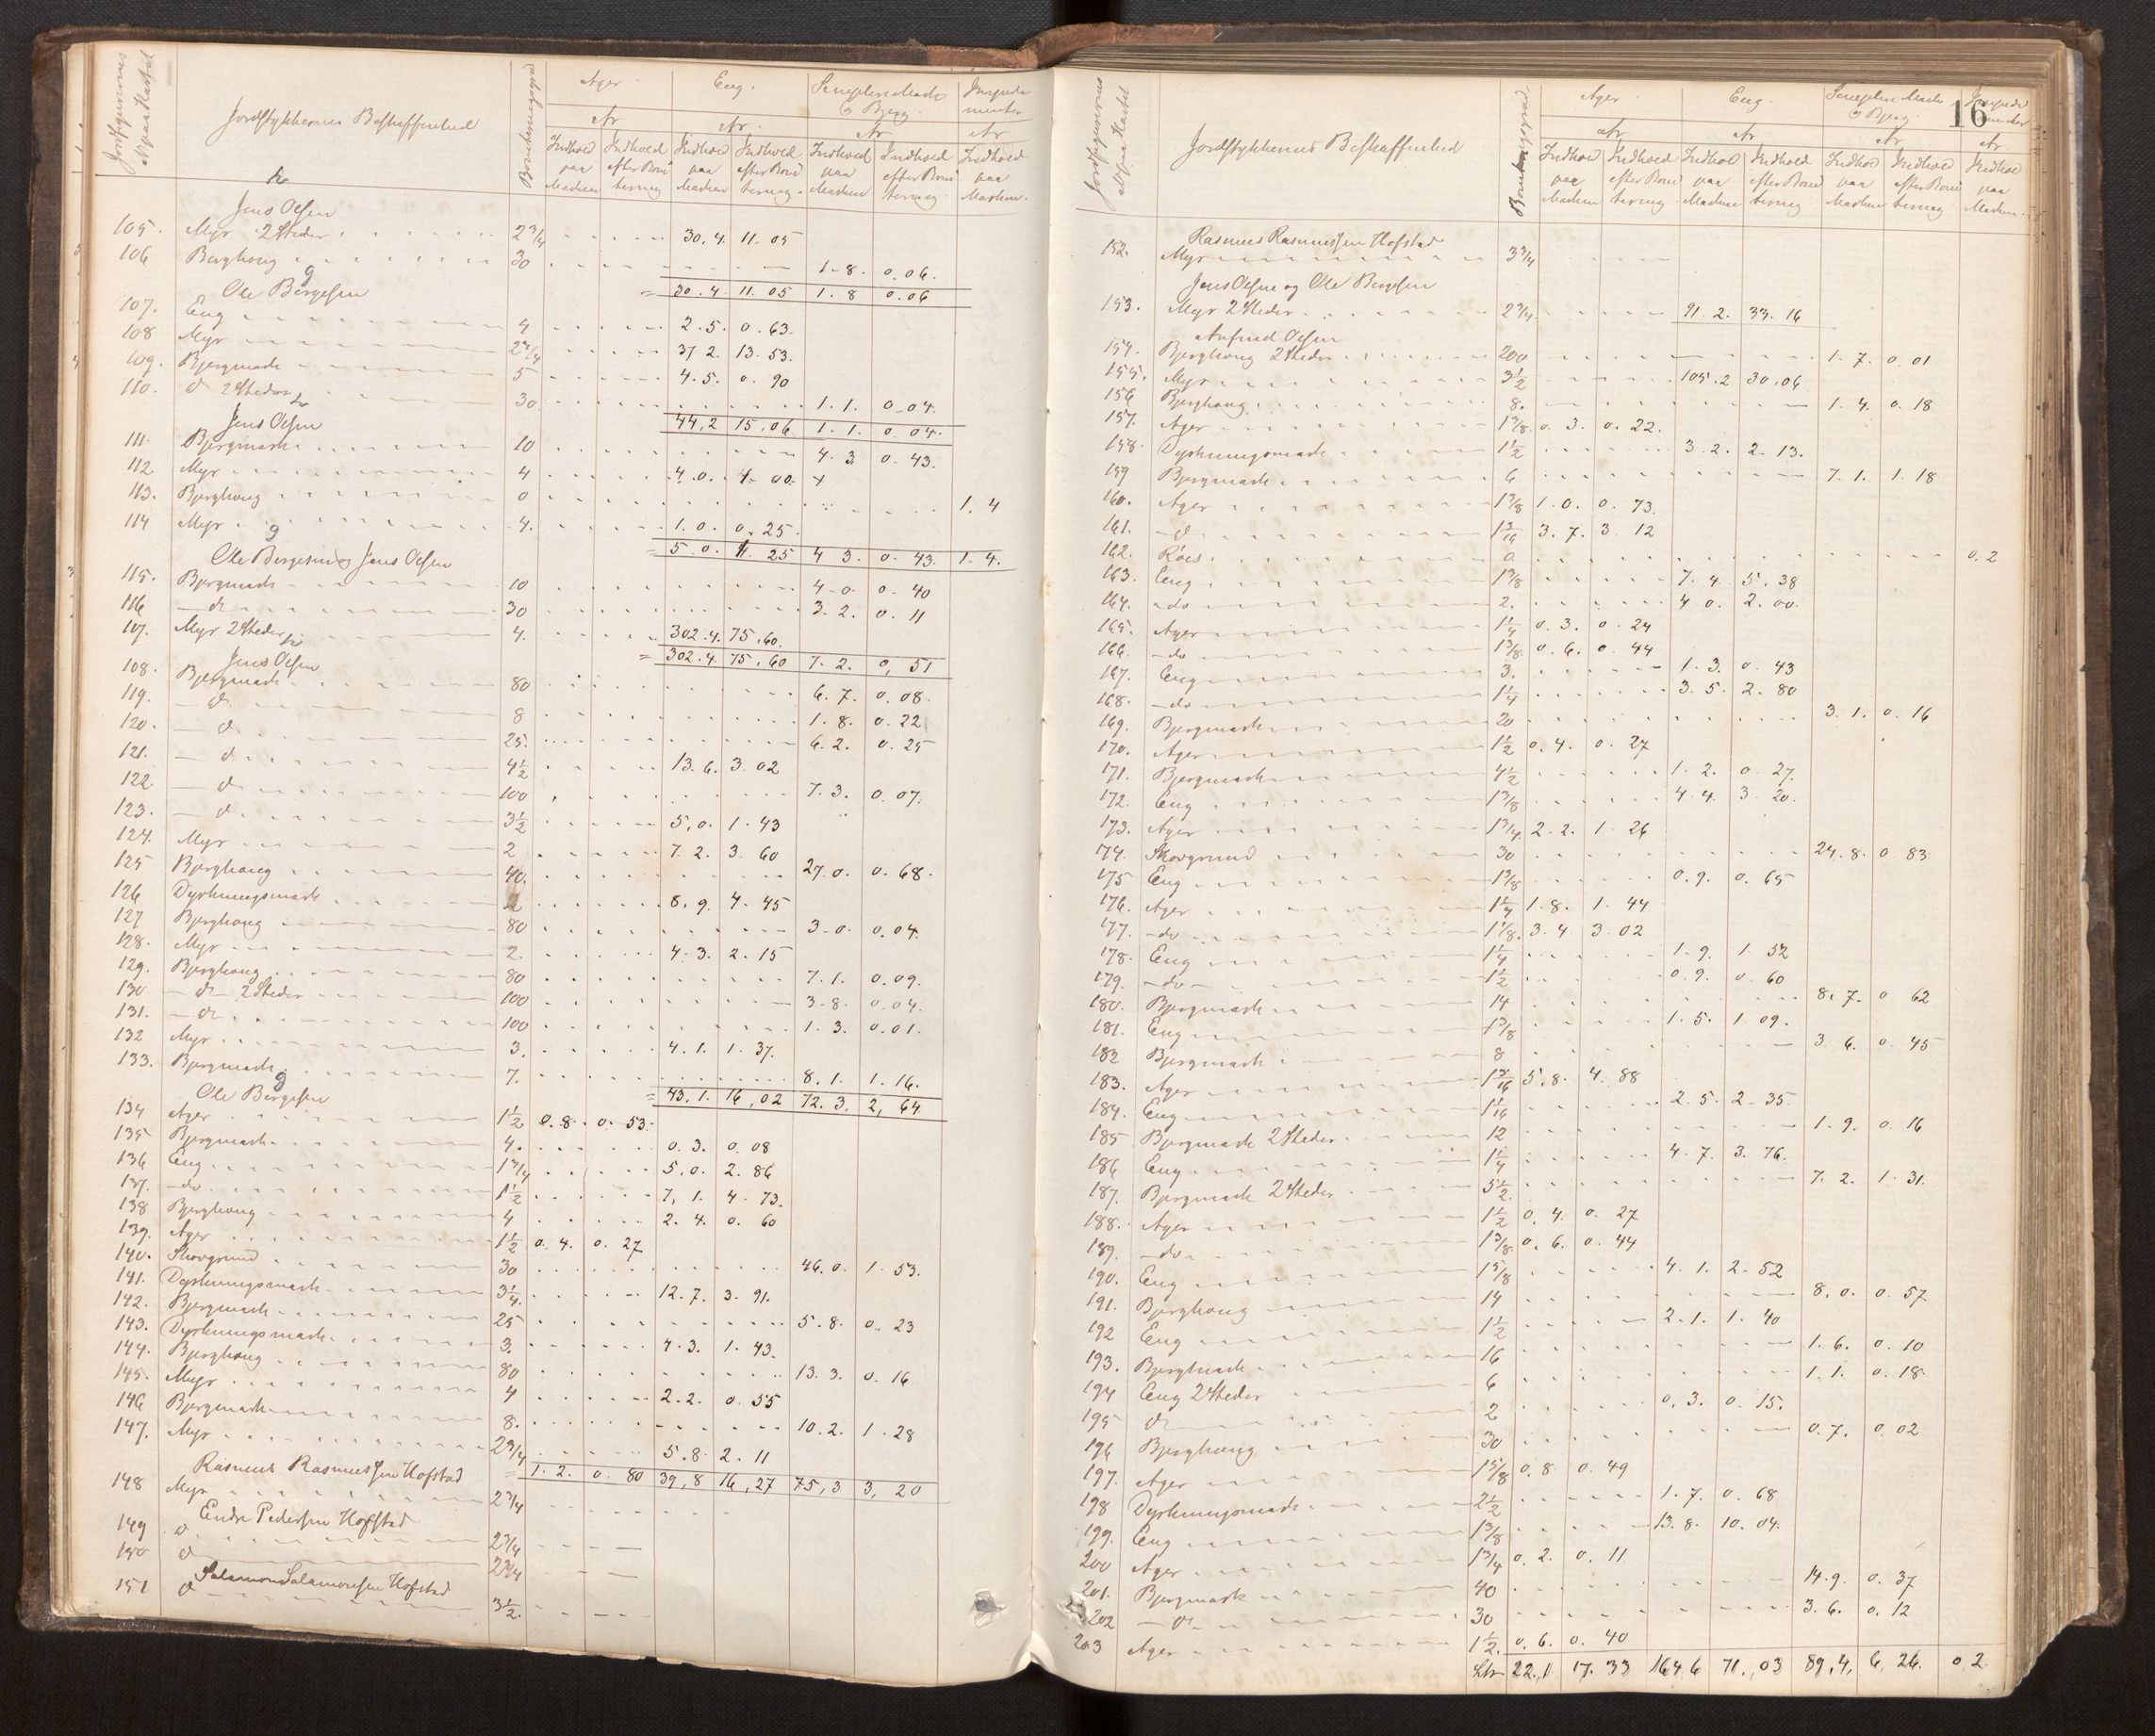 Jordfigurernes No paa Kartet | Jordstykkernes Beskaffenhed | Boniteringsgrad | Ager | Eng | Simplere Mark og Bjerg | Impedimenter
Ar | Ar | Ar | Ar
Indhold paa Marken | Indhold efter Bonitering | Indhold paa Marken | Indhold efter Bonitering | Indhold paa Marken | Indhold efter Bonitering | Indhold paa Marken
Jens Olsen
105. Myr 2 Steder 2 3/4 30.4. 11.05
106 Berghoug 30 1.8. 0.06.
Ole Børgesen = 30.4. 11.05 1.8 0.06
107. Eng 4 2.5. 0.63.
108 Myr 2 3/4 37 2. 13.53.
109. Bjergmark 5 4.5. 0.90
110. do 2 Steder 30. 1.1. 0.04.
Jens Olsen 44,2 15,06 1.1. 0.04.
111. Bjergmark 10 4.3 0.43.
112. Myr 4 4.0. 1.00.
113. Berghoug 0 1.4
114 Myr 4. 1.0. 0.25
Ole Børgesen og Jens Olsen = 5.0. 1.25 4 3. 0.43. 1.4.
115. Bjergmark 10 4.0. 0.40
116 do 30 3.2. 0.11
107. Myr 2 Steder 4. 302.4. 75.60.
Jens Olsen = 302.4. 75.60 7.2. 0,51
108. Bjergmark 80 6.7. 0.08.
119. do 8 1.8. 0.22
120. do 25. 6.2. 0.25
121. do 4 1/2 13.6. 3.02
122. do 100 7.3. 0.07.
123. do 3 1/2 5,0. 1.43
124. Myr 2 7.2. 3.60
125 Berghoug 40. 27.0. 0.68.
126 Dyrkningsmark 2 8.9. 4.45
127 Berghoug 80 3.0. 0.04.
128. Myr 2. 4.3. 2.15
129. Berghoug 80 7.1. 0.09.
130 do 2 Steder 100 3.8. 0.04.
131. do 100 1.3. 0.01.
132 Myr 3. 4.1. 1.37.
133. Bjergmark 7. 8.1. 1.16.
Ole Børgesen = 43.1. 16,02 72.3. 2,64
134 Ager 1 1/2 0.8. 0.53.
135 Bjergmark 4. 0.3. 0.08
136 Eng 1 3/4 5,0. 2.86
137. do 1 1/2 7,1. 4.73.
138 Berghoug 4 2.4. 0.60
139. Ager 1 1/2 0.4. 0.27
140. Skovgrund 30 46.0. 1.53.
141. Dyrkningsmark 3 1/4. 12.7. 3.91.
142. Bjergmark 25 5.8. 0.23
143. Dyrkningsmark 3. 4.3. 1.43.
144. Berghoug 80 13.3. 0.16
145. Myr 4 2.2. 0.55
146 Bjergmark 8. 10.2. 1.28
147. Myr 2 3/4 5.8. 2.11
Rasmus Rasmussen Hofstad = 1.2. 0.80 39,8 16,27 75,3 3,20
148 Myr 2 3/4
Endre Pedersen Hofstad
149 do 2 3/4
150 do 2 3/4
Salamon Salamonsen Hofstad
151 do 3 1/2.
16
Jordfigurernes No paa Kartet | Jordstykkernes Beskaffenhed | Boniteringsgrad | Ager | Eng | Simplere Mark og Bjerg | Impedimenter
Ar | Ar | Ar | Ar
Indhold paa Marken | Indhold efter Bonitering | Indhold paa Marken | Indhold efter Bonitering | Indhold paa Marken | Indhold efter Bonitering | Indhold paa Marken
Rasmus Rasmussen Hofstad
152. Myr 3 3/4
Jens Olsen og Ole Børgesen
153. Myr 2 Steder 2 3/4 91.2. 33.16
Anfind Olsen
154. Berghoug 2 Steder 200 1.7. 0.01
155. Myr 3 1/2 105.2 30.06
156 Berghoug 8. 1.4. 0.18
157. Ager 1 3/8. 0.3. 0.22.
158. Dyrkningsmark 1 1/2 3.2. 2.13.
159 Bjergmark 6 7.1. 1.18
160. Ager 1 3/8 1.0. 0.73.
161. do 1 3/16 3.7. 3 12
162. Røis 0 0.2
163. Eng 1 3/8 7.4. 5.38
164. do 2. 4 0. 2.00.
165. Ager 1 1/4 0.3. 0.24
166. do 1 3/8. 0.6. 0.44
167. Eng 3. 1.3. 0.43
168. do 1 1/4 3.5. 2.80
169. Bjergmark 20 3.1. 0.16
170. Ager 1 1/2 0.4. 0.27
171. Bjergmark 4 1/2 1.2. 0.27.
172. Eng 1 3/8 4.4. 3.20.
173. Ager 1 3/4. 2.2. 1.26
174. Skovgrund 30 24.8. 0 83.
175 Eng 1 3/8 0.9. 0.65
176. Ager 1 1/4 1.8. 1.44
177. do 1 1/8. 3.4 3.02
178. Eng 1 1/4 1.9. 1.52
179. do 1 1/2 0.9. 0.60
180. Bjergmark 14 8.7. 0 62
181. Eng 1 3/8 1.5. 1 09.
182 Bjergmark 8 3 6. 0.45
183. Ager 1 3/16 5.8. 4.88
184. Eng 1 1/16 2.5. 2.35.
185 Bjergmark 2 Steder 12 1.9. 0.16
186 Eng 1 1/4 4.7. 3.76.
187. Bjergmark 2 Steder 5 1/2. 7.2. 1.31.
188. Ager 1 1/2 0.4. 0.27
189. do 1 3/8. 0.6. 0.44
190. Eng 1 5/8 4.1. 2.52
191. Berghoug 14 8.0. 0.57.
192 Eng 1 1/2 2.1. 1.40
193. Bjergmark 16 1.6. 0.10
194 Eng 2 Steder 6 1.1. 0.18.
195 do 2 0.3. 0.15.
196 Berghoug 30 0.7. 0.02
197. Ager 1 5/8 0.8. 0.49
198 Dyrkningsmark 2 1/2 1.7. 0.68
199. Eng 1 3/8 13.8. 10.04.
200 Ager 1 3/4 0.2. 0.11
201. Bjergmark 40 14.9. 0.37
202 do 30 3.6. 0.12
203 Ager 1 1/2. 0.6. 0.40
Ltr 22,1 17.33 164 6 71.,03 89,4, 6,26. 0 2.